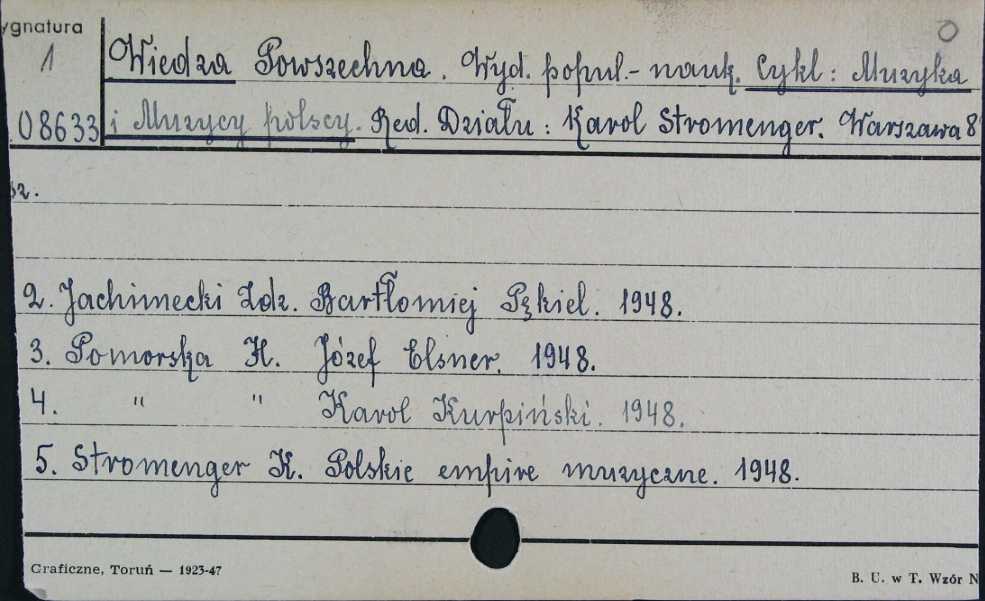 ygnatura
1
08633
O
Wiedza Powszechna. Wyd. popul.- nauk. Cykl: Muzyka
i Muzycy polscy. Red. Działu: Karol Stromenger. Warszawa 8
sz.
2. Jachimecki Zdz. Bartłomiej Pękiel. 1948.
3. Pomorska H. Józef Elsner. 1948.
4. " " Karol Kurpiński. 1948.
5. Stromenger K. Polskie empire muzyczne. 1948.
Graficzne, Toruń — 1923-47
B. U. w T. Wzór N